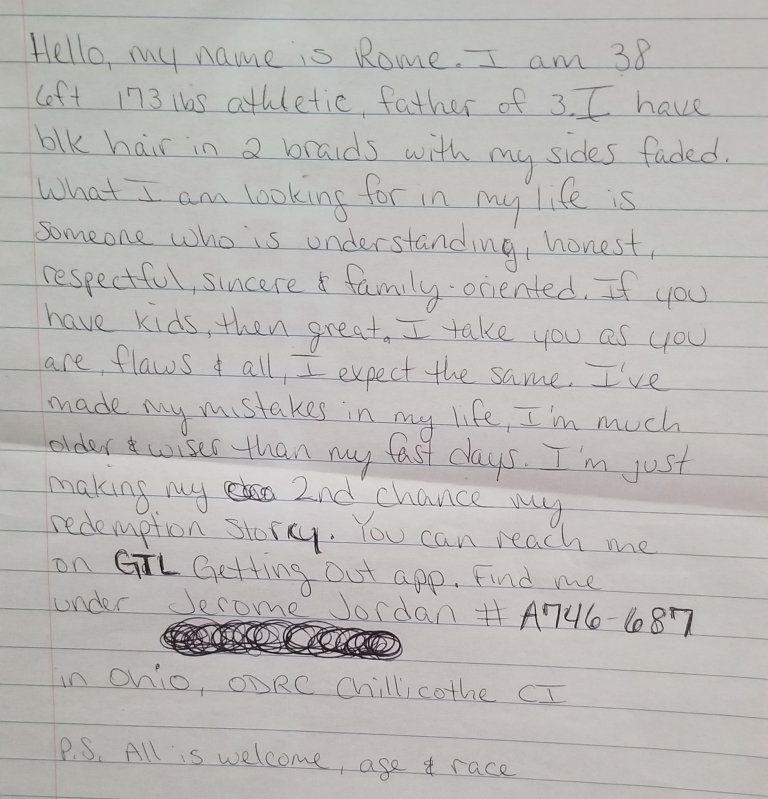 Hello, my name is Rome. I am 38
6ft 173 lbs athletic, father of 3. I have
blk hair in 2 braids with my sides faded.
What I am looking for in my life is
someone who is understanding, honest,
respectful, sincere & family-oriented. If you
have kids, then great. I take you as you
are, flaws & all, I expect the same. I've
made my mistakes in my life, I'm much
older & wiser than my fast days. I'm just
making my 2nd chance my
redemption story. You can reach me
on GTL Getting Out app. Find me
under Jerome Jordan # A746-687
in Ohio, ODRC Chillicothe CI
P.S. All is welcome, age & race